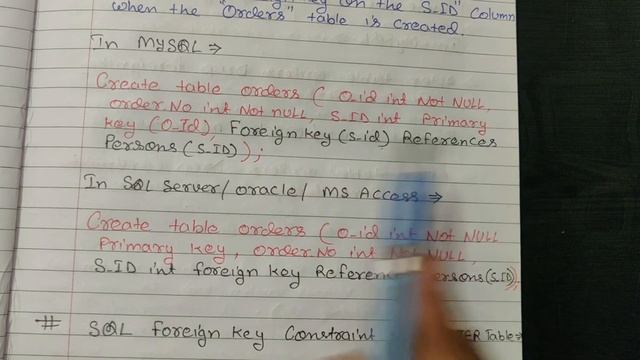 on the S_ID" Column
when the "Orders" table is created.
In MySQL ⇒
Create table orders ( O_id int Not NULL,
order No int Not null, S_ID int Primary
key (O_Id), Foreign key (S_id) References
Persons (S_ID));
In SQL Server/ oracle/ MS Access ⇒
Create table orders ( O_id int Not NULL
Primary key, order No int Not NULL,
S_ID int foreign key Persons (S_ID));
# SQL foreign key Constraint Table ⇒